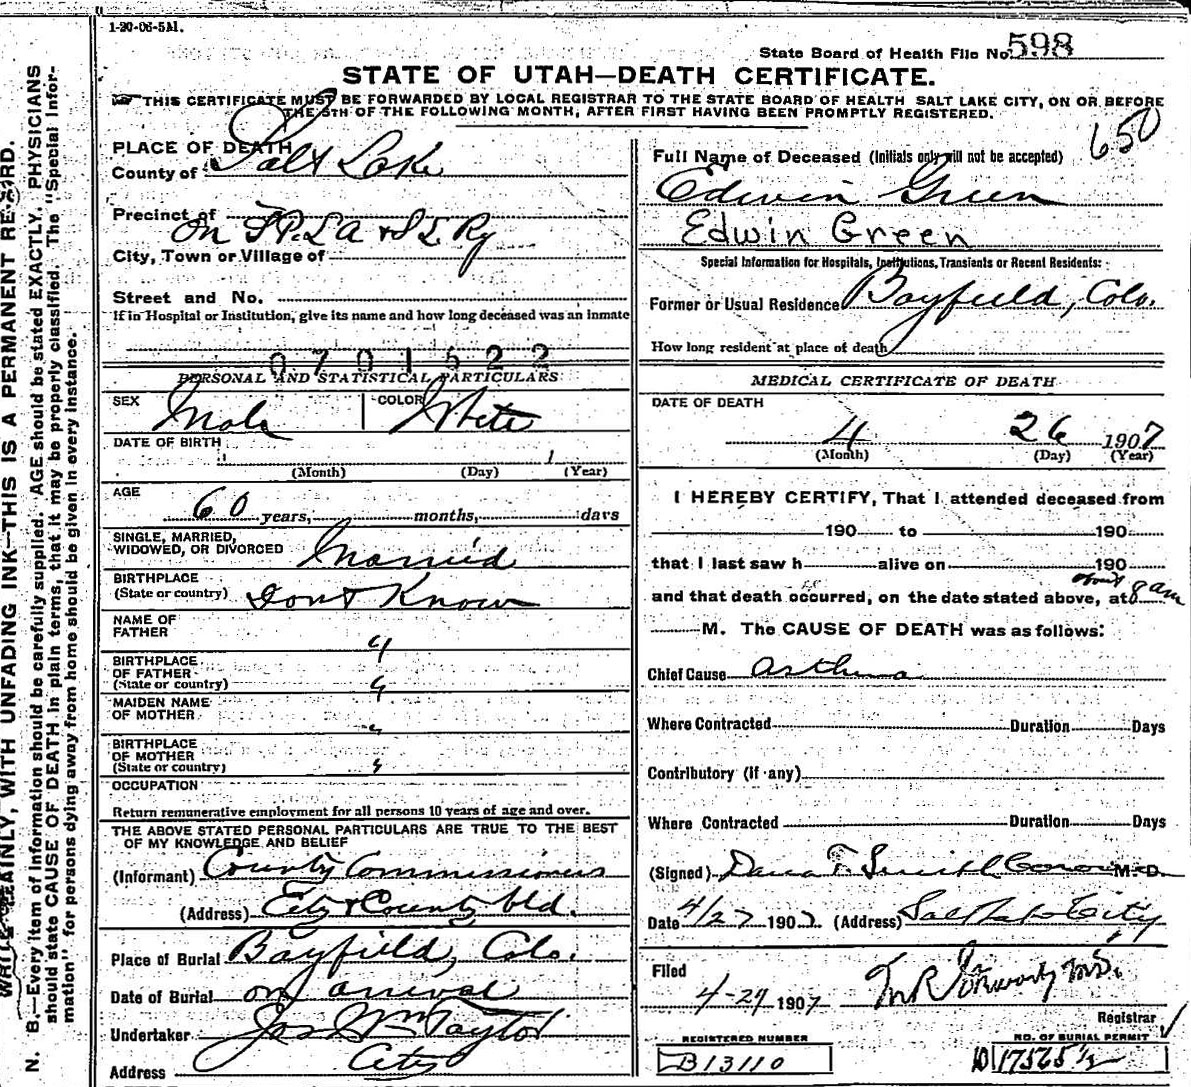 1-20-06-5M.
State Board of Health File No. 598
STATE OF UTAH—DEATH CERTIFICATE.
THIS CERTIFICATE MUST BE FORWARDED BY LOCAL REGISTRAR TO THE STATE BOARD OF HEALTH SALT LAKE CITY, ON OR BEFORE
THE 5TH OF THE FOLLOWING MONTH, AFTER FIRST HAVING BEEN PROMPTLY REGISTERED.
650
PLACE OF DEATH
County of Salt Lake
Precinct of
On S.P.L.A & S.L. Ry
City, Town or Village of
Street and No.
If in Hospital or Institution, give its name and how long deceased was an inmate
0701522
PERSONAL AND STATISTICAL PARTICULARS
SEX Male COLOR White
DATE OF BIRTH
(Month) (Day) (Year)
AGE
60 years, months, days
SINGLE, MARRIED,
WIDOWED, OR DIVORCED Married
BIRTHPLACE
(State or country) Dont Know
NAME OF
FATHER "
BIRTHPLACE
OF FATHER
(State or country) "
MAIDEN NAME
OF MOTHER "
BIRTHPLACE
OF MOTHER
(State or country) "
OCCUPATION
Return remunerative employment for all persons 10 years of age and over.
THE ABOVE STATED PERSONAL PARTICULARS ARE TRUE TO THE BEST
OF MY KNOWLEDGE AND BELIEF
(Informant) County Commissioners
(Address) City & County bld.
Place of Burial Bayfield, Colo.
Date of Burial on arrival
Undertaker Jos Wm Taylor
Address City
Full Name of Deceased (Initials only will not be accepted)
Edwin Green
Edwin Green
Special Information for Hospitals, Institutions, Transients or Recent Residents:
Former or Usual Residence Bayfield, Colo.
How long resident at place of death
MEDICAL CERTIFICATE OF DEATH
DATE OF DEATH
4 26 1907
(Month) (Day) (Year)
I HEREBY CERTIFY, That I attended deceased from
190 to 190
that I last saw h alive on 190
and that death occurred, on the date stated above, at about 8 am
M. The CAUSE OF DEATH was as follows:
Chief Cause Asthma
Where Contracted Duration Days
Contributory (if any)
Where Contracted Duration Days
(Signed) Dana T. Smith Coroner M. D.
Date 4/27 1907 (Address) Salt Lake City
Filed
4-27 1907
Registrar
REGISTERED NUMBER
B13110
NO. OF BURIAL PERMIT
D17565½
WRITE PLAINLY, WITH UNFADING INK—THIS IS A PERMANENT RECORD.
N. B.—Every item of Information should be carefully supplied. AGE should be stated EXACTLY. PHYSICIANS
should state CAUSE OF DEATH in plain terms, that it may be properly classified. The "Special Infor-
mation" for persons dying away from home should be given in every instance.